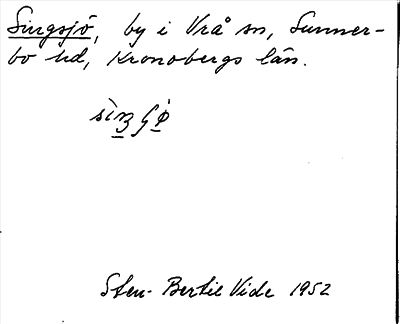 Singsjö, by i Vrå sn, Sunner-
bo hd, Kronobergs län.
Sten-Bertil Vide 1952